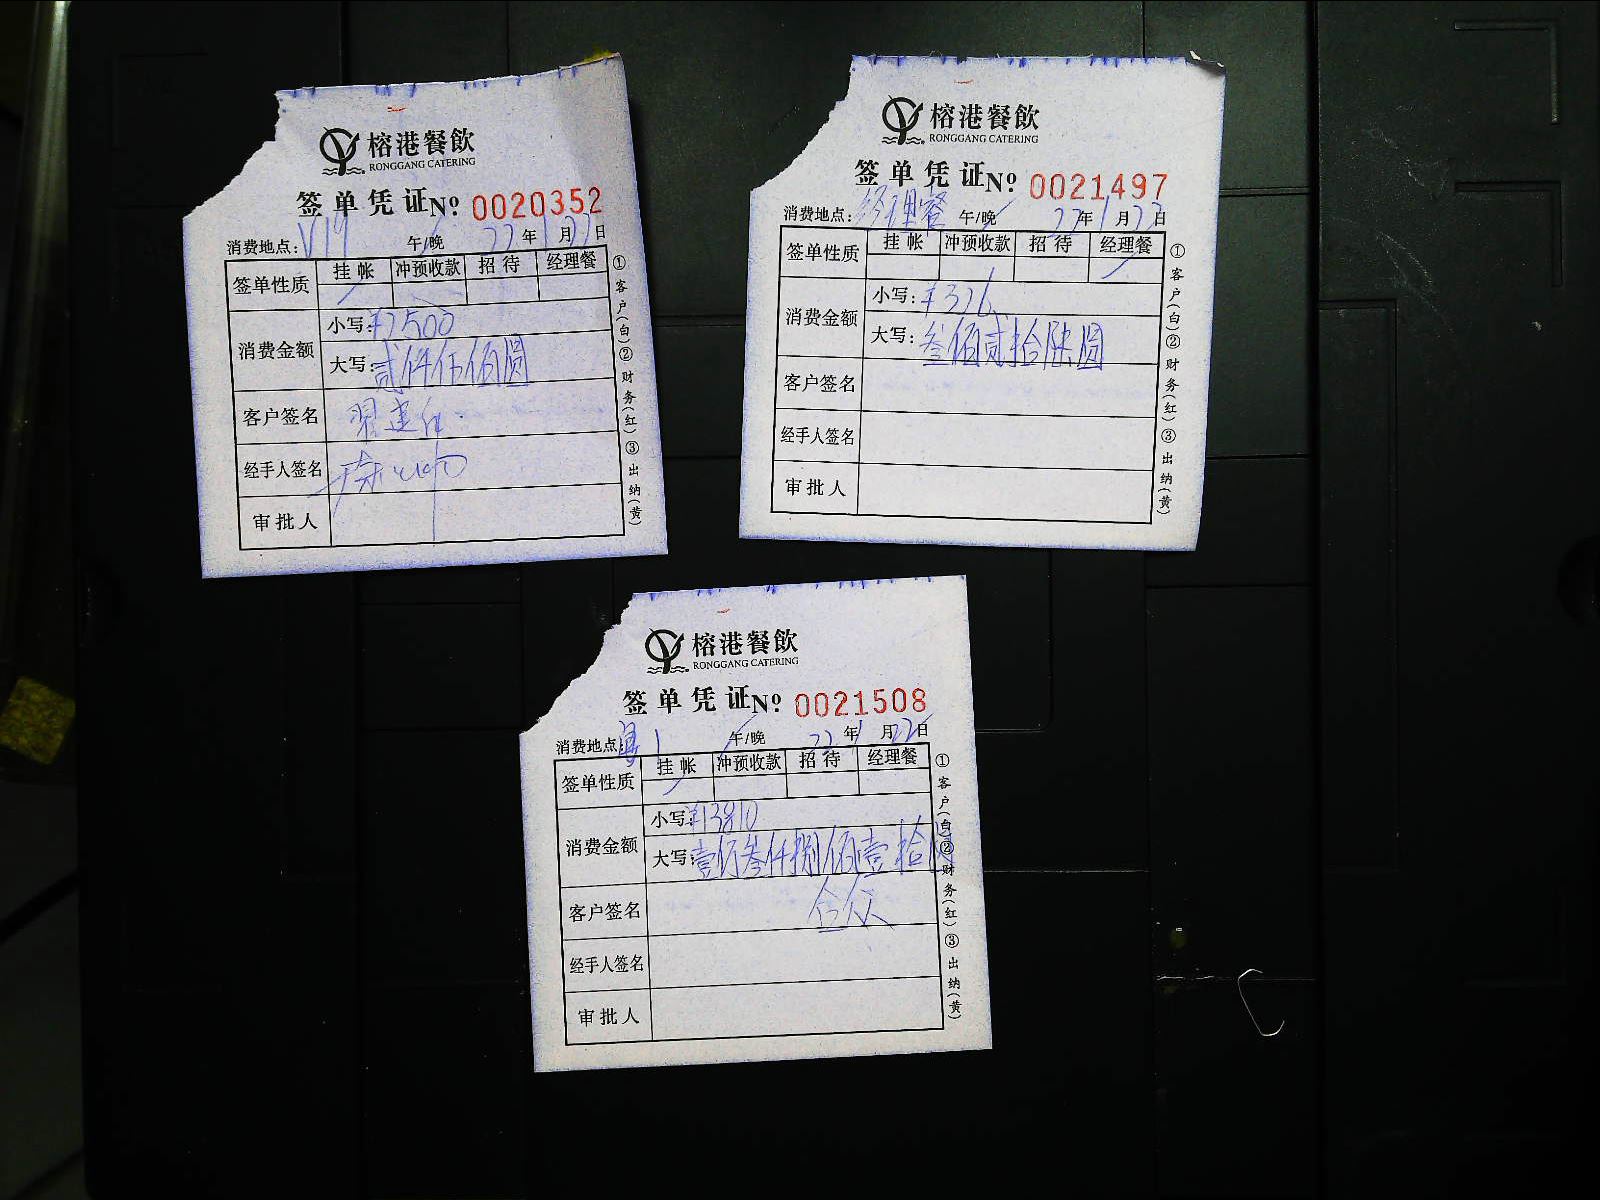 榕港餐飲
RONGGANG CATERING
签单凭证 Nº 0020352
消费地点: V19 午/晚 22年1月22日
签单性质 挂帐 冲预收款 招待 经理餐
消费金额 小写: ¥2500
大写: 贰仟伍佰圆
客户签名
经手人签名
审批人
①客户(白)②财务(红)③出纳(黄)
榕港餐飲
RONGGANG CATERING
签单凭证 Nº 0021497
消费地点: 经理餐 午/晚 22年1月22日
签单性质 挂帐 冲预收款 招待 经理餐
消费金额 小写: ¥326
大写: 叁佰贰拾陆圆
客户签名
经手人签名
审批人
①客户(白)②财务(红)③出纳(黄)
榕港餐飲
RONGGANG CATERING
签单凭证 Nº 0021508
消费地点: 午/晚 22年1月22日
签单性质 挂帐 冲预收款 招待 经理餐
消费金额 小写: ¥13810
大写: 壹万叁仟捌佰壹拾圆
客户签名 合众
经手人签名
审批人
①客户(白)②财务(红)③出纳(黄)